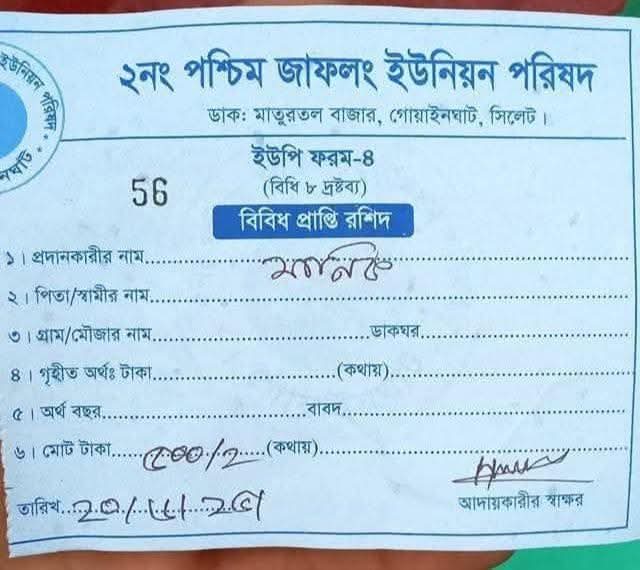 ইউনিয়ন পরিষদ
২নং পশ্চিম জাফলং ইউনিয়ন পরিষদ
ডাক: মাতুরতল বাজার, গোয়াইনঘাট, সিলেট।
ইউপি ফরম-৪
(বিধি ৮ দ্রষ্টব্য)
56
বিবিধ প্রাপ্তি রশিদ
১। প্রদানকারীর নাম.......... মানিক
২। পিতা/স্বামীর নাম..........
৩। গ্রাম/মৌজার নাম..........ডাকঘর..........
৪। গৃহীত অর্থঃ টাকা..........(কথায়)..........
৫। অর্থ বছর..........বাবদ..........
৬। মোট টাকা.....৫০০/২.....(কথায়)..........
তারিখ..
আদায়কারীর স্বাক্ষর